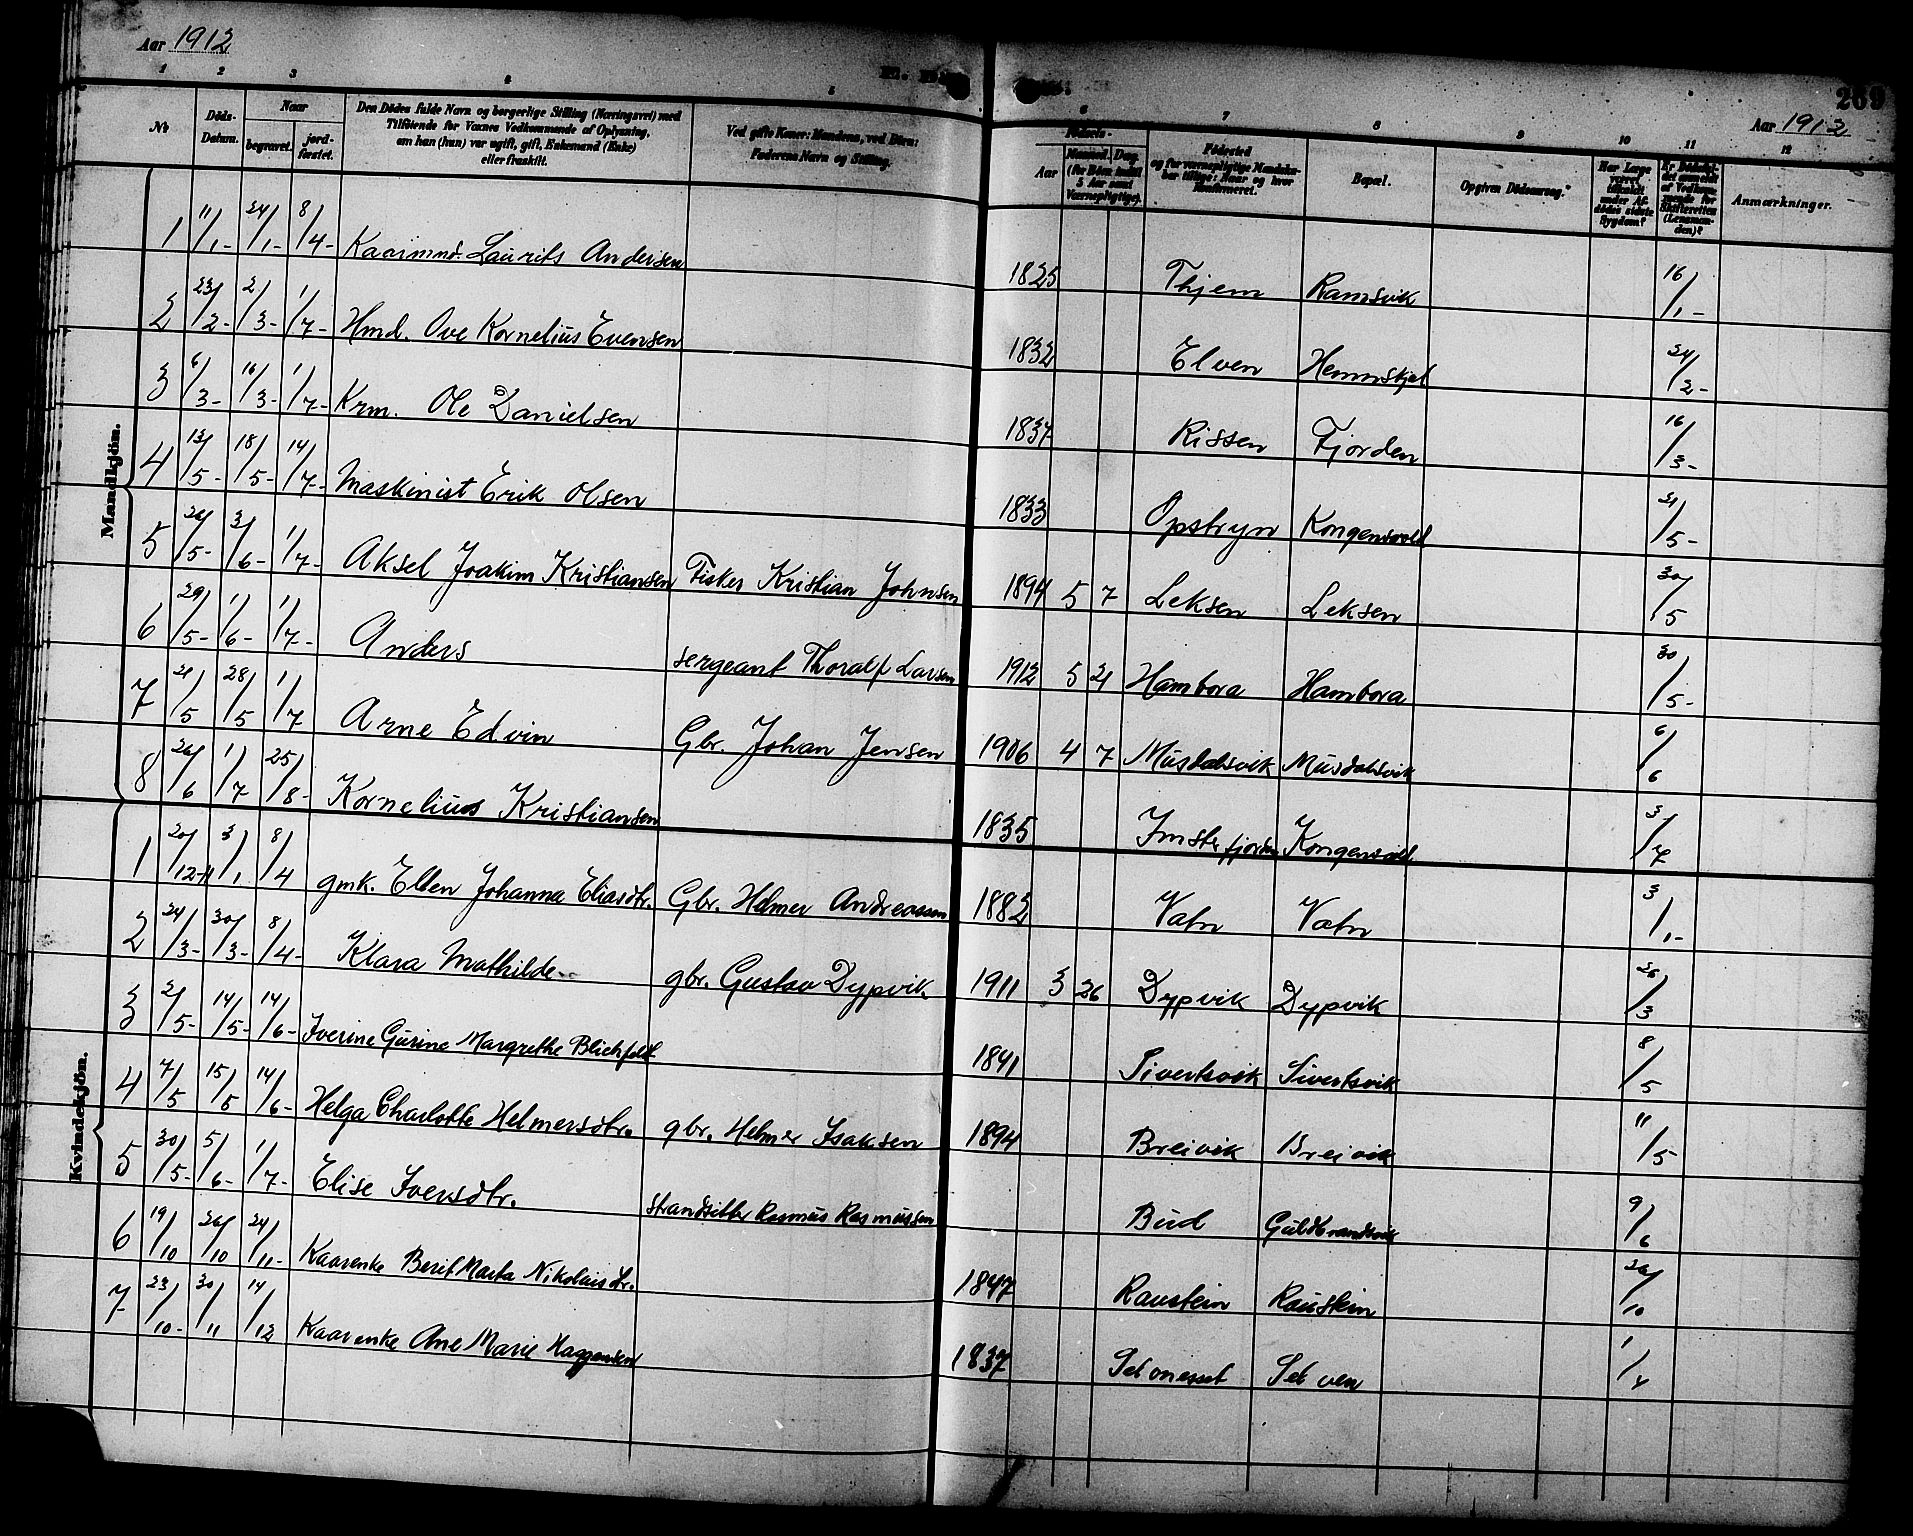 Aar 1912
269
Aar 1912
1 2 3 4 5 6 7 8 9 10 11 12
No
Döds-Datum.
Naar
begravet.
jordfæstet.
Den Dödes fulde Navn og borgerlige Stilling (Næringsvei) med
Tilföiende for Voxnes Vedkommende af Oplysning,
om han (hun) var ugift, gift, Enkemand (Enke)
eller fraskilt.
Ved gifte Koner: Mandens, ved Börn:
Faderens Navn og Stilling.
Födsels-
Aar
Maaned. Dag.
(for Börn indtil
5 Aar samt
Værnepligtige).
Födested
og for værnepligtige Mandskaber tillige: Naar og hvor
konfirmeret.
Bopæl.
Opgiven Dödsaarsag.
Har Læge
været
tilkaldt
under Afdödes sidste
Sygdom?
Er Dödsfaldet anmeldt
af Vedkommende for
Skifteretten
(Lensmanden)?
Anmærkninger.
Mandkjön.
1 11/1- 24/1- 8/4- Kaarmnd. Laurits Andersen 1825 Thjem Ramsvik 16/1-
2 23/2- 2/3- 1/7- Hmd. Ove Kornelius Evensen 1832 Elven Hemnskjel 24/2-
3 6/3- 16/3- 1/7- Krm. Ole Danielsen 1837 Rissen Fjorden 16/3-
4 13/5- 18/5- 14/7- Maskinist Erik Olsen 1833 Opstryn Kongensvold 21/5-
5 26/5- 3/6- 1/7- Aksel Joakim Kristiansen Fisker Kristian Johnsen 1894 5 7 Leksen Leksen 30/5
6 29/5- 1/6- 1/7- Anders sergeant Thoralf Larsen 1912 5 21 Hambora Hambora 30/5-
7 21/5 28/5 1/7 Arne Edvin Gbr. Johan Jensen 1906 4 7 Musdalsvik Musdalsvik 6/6
8 26/6 1/7 25/8- Kornelius Kristiansen 1835 Imsterfjorden Kongensvold 3/7
Kvindekjön.
1 20/12-11 3/1 8/4 gmk. Ellen Johanna Eliasdtr. Gbr. Helmer Andreassen 1882 Vatn Vatn 3/1-
2 24/3- 30/3- 8/4- Klara Mathilde gbr. Gustav Dypvik 1911 3 26 Dypvik Dypvik 26/3
3 2/5- 14/5- 14/6- Iverine Gurine Margrethe Blichfeldt 1841 Sivertsvik Sivertsvik 8/5
4 7/5 15/5 14/6- Helga Charlotte Helmersdtr. gbr. Helmer Isaksen 1894 Breivik Breivik 11/5
5 30/5- 5/6- 1/7- Elise Iversdtr. strandsitter Rasmus Rasmussen Bud Guldbrandsvik 9/6
6 19/10 26/10 24/11- Kaarenke Berit Marta Nikolaisdtr. 1847 Raustein Raustein 26/10
7 23/10- 30/11 14/12 Kaarenke Ane Marie Haggensen 1837 Selvnesset Selven